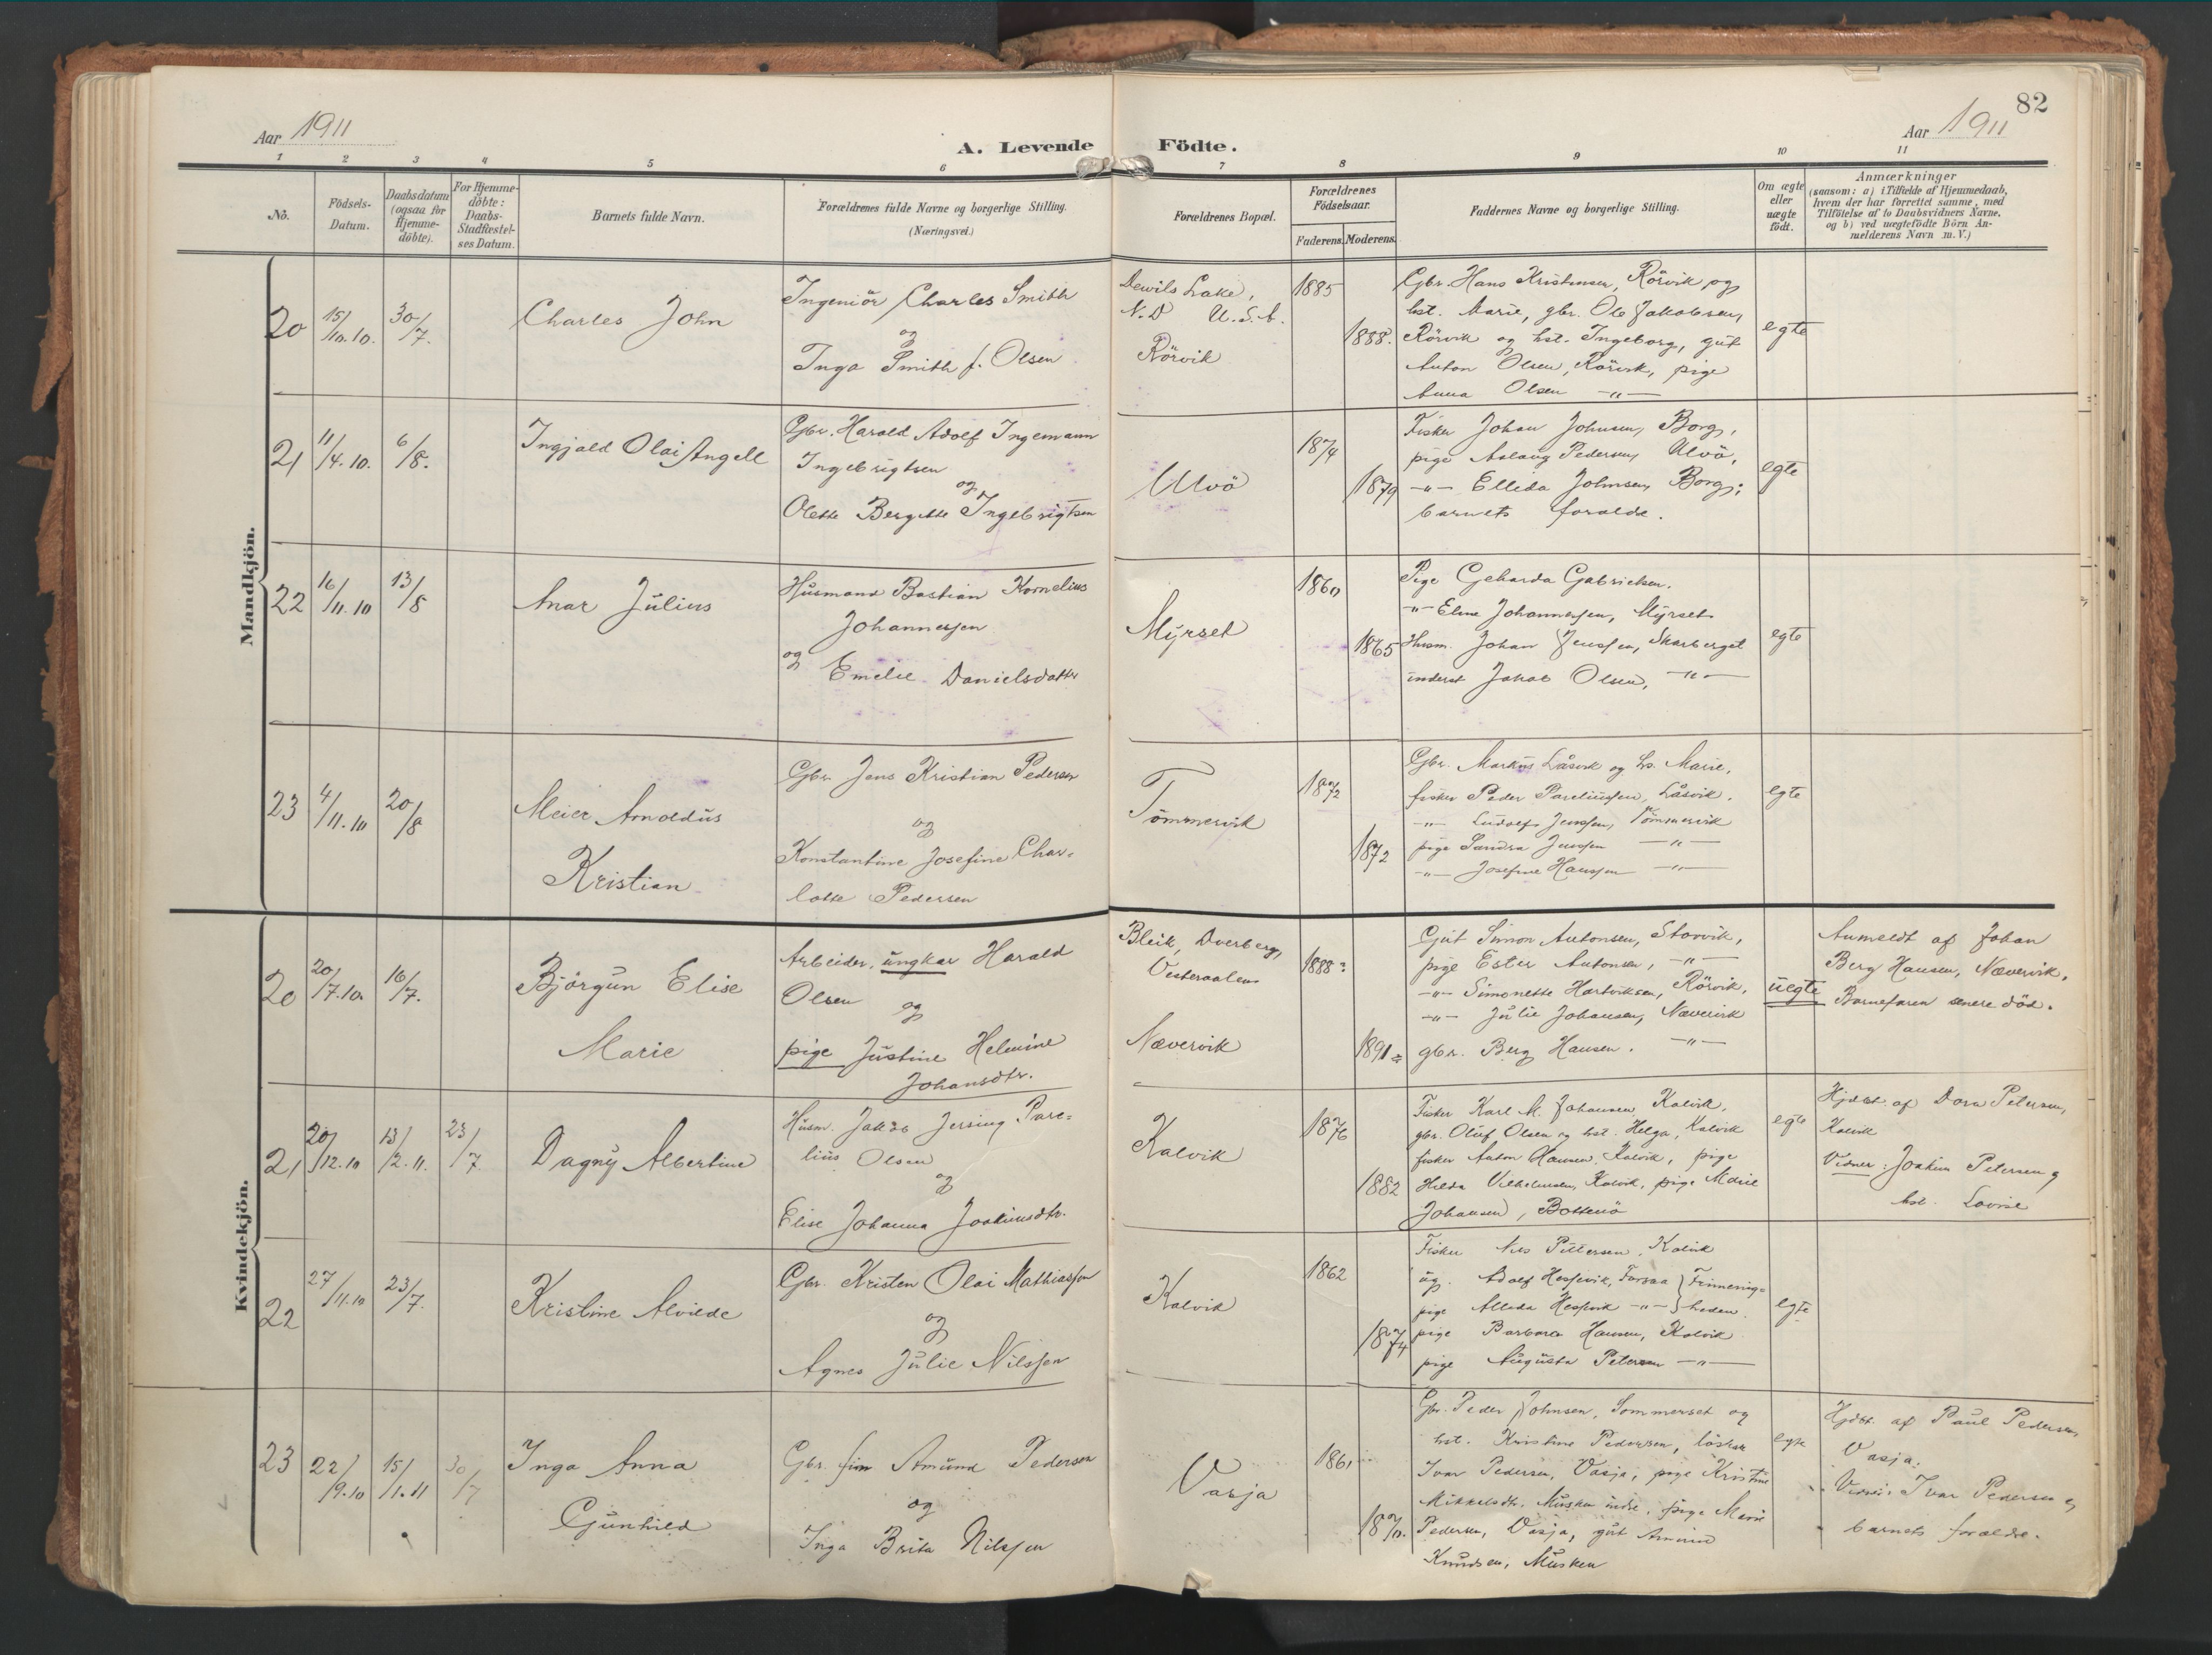 82
Aar 1911
A. Levende Födte.
Aar 1911
1 2 3 4 5 6 7 8 9 10 11
No.
Födsels-
Datum.
Daabsdatum
(ogsaa for
Hjemme-
döbte).
For Hjemme-
döbte:
Daabs-
Stadfæstel-
ses Datum.
Barnets fulde Navn.
Forældrenes fulde Navne og borgerlige Stilling.
(Næringsvei.)
Forældrenes Bopæl.
Forældrenes
Födselsaar.
Faderens. Moderens.
Faddernes Navne og borgerlige Stilling.
Om ægte
eller
uægte
födt.
Anmærkninger
(saasom: a) i Tilfælde af Hjemmedaab,
hvem der har forrettet samme, med
Tilföielse af to Daabsvidners Navne,
og b) ved uægtefödte Börn An-
melderens Navn m. V.)
Mandkjön.
20
15/10.10.
30/7.
Charles John
Ingeniör Charles Smith
og
Inga Smith f. Olsen
Dewils Lake,
N.D U.S.A.
Rörvik
1885
1888.
Gbr. Hans Kristensen, Rörvik og
hst. Marie, gbr. Ole Jakobsen,
Rörvik og hst. Ingeborg, gut
Anton Olsen, Rörvik, pige
Anna Olsen -"-
egte
21
11/4.10.
6/8.
Ingjald Olai Angell
Gbr. Harald Adolf Ingemann
Ingebrigtsen
og
Olette Bergitte Ingebrigtsen
Ulvö
1874
1879
Fisker Johan Johnsen, Borg,
pige Aslaug Pedersen, Ulvö,
-"- Ellida Johnsen, Borg;
barnets foralde.
egte
22
16/11.10
13/8
Anar Julius
Husmand Bastian Kornelius
Johannesen
og Emelie Danielsdatter
Myrset
1860
1865
Pige Geharda Gabrielsen.
-"- Eline Johannesen, Myrset
Husm. Johan Jenssen, Skarberget
inderst Jakob Olsen, -"-
egte
23
4/11.10
20/8
Meier Arnoldus
Kristian
Gbr. Jens Kristian Pedersen
og
Konstantine Josefine Char-
lotte Pedersen
Tömmervik
1872
1872
Gbr. Markus Låsvik og hs. Marie,
fisker Peder Pareliussen, Låsvik.
-"- Ludolf Jenssen, Tömmervik
pige Sandra Jenssen -"-
-"- Josefine Hanssen -"-
egte
Kvindekjön.
20
20/7.10.
16/7.
Björgun Elise
Marie
Arbeider, ungkar Harald
Olsen og
pige Justine Helmine
Johansdtr.
Bleik, Dverberg,
Vesteraalen
Nævervik
1888
1891
Gut Simon Antonsen, Storvik,
pige Ester Antonsen, -"-
-"- Simonette Hartviksen, Rörvik,
-"- Julie Johansen, Nævervik
gbr. Berg Hansen. -"-
uegte
Anmeldt af Johan
Berg Hansen, Nævervik.
Barnefaren senere död.
21
20/12.10
13/2.11.
23/7
Dagny Albertine
Husm. Jakob Jersing Pare-
lius Olsen
og
Elise Johanna Joakimsdtr.
Kalvik
1876
1882
Fisker Karl M. Johansen, Kalvik,
gbr. Oluf Olsen og hst. Helga, Kalvik
fisker Anton Hansen, Kalvik, pige
Hilda Vilhelmsen, Kalvik, pige Marie
Johansen, Bottenö
egte
Hjdöbt. af Dora Petersen,
Kalvik
Vidner: Joakim Petersen og
hst. Lovise
22
27/11.10
23/7.
Kristine Alvilde
Gbr. Kristen Olai Mathiassen
og
Agnes Julie Nilssen
Kalvik
1862
1874
Fisker Nils Pettersen, Kalvik
ug. Adolf Hesjevik, Forsaa } Frimenig-
pige Alleda Hesjevik -"- } heden
pige Barbara Hansen, Kalvik
pige Augusta Petersen -"-
egte
23
22/9.10
15/1.11
30/7
Inga Anna
Gunhild
Gbr. Amund Pedersen
og
Inga Brita Nilssen
Vasja
1861
1870.
Gbr. Peder Johnsen, Sommerset og
hst. Kristine Pedersen, löskar
Ivar Pedersen, Vasja, pige Kristine
Mikkelsdtr. Musken indre, pige Marie
Pedersen, Vasja, gut Amund
Knudsen, Musken
egte
Hjdöbt. af Paul Pedersen,
Vasja.
Vidner: Ivar Pedersen og
barnets forældre.